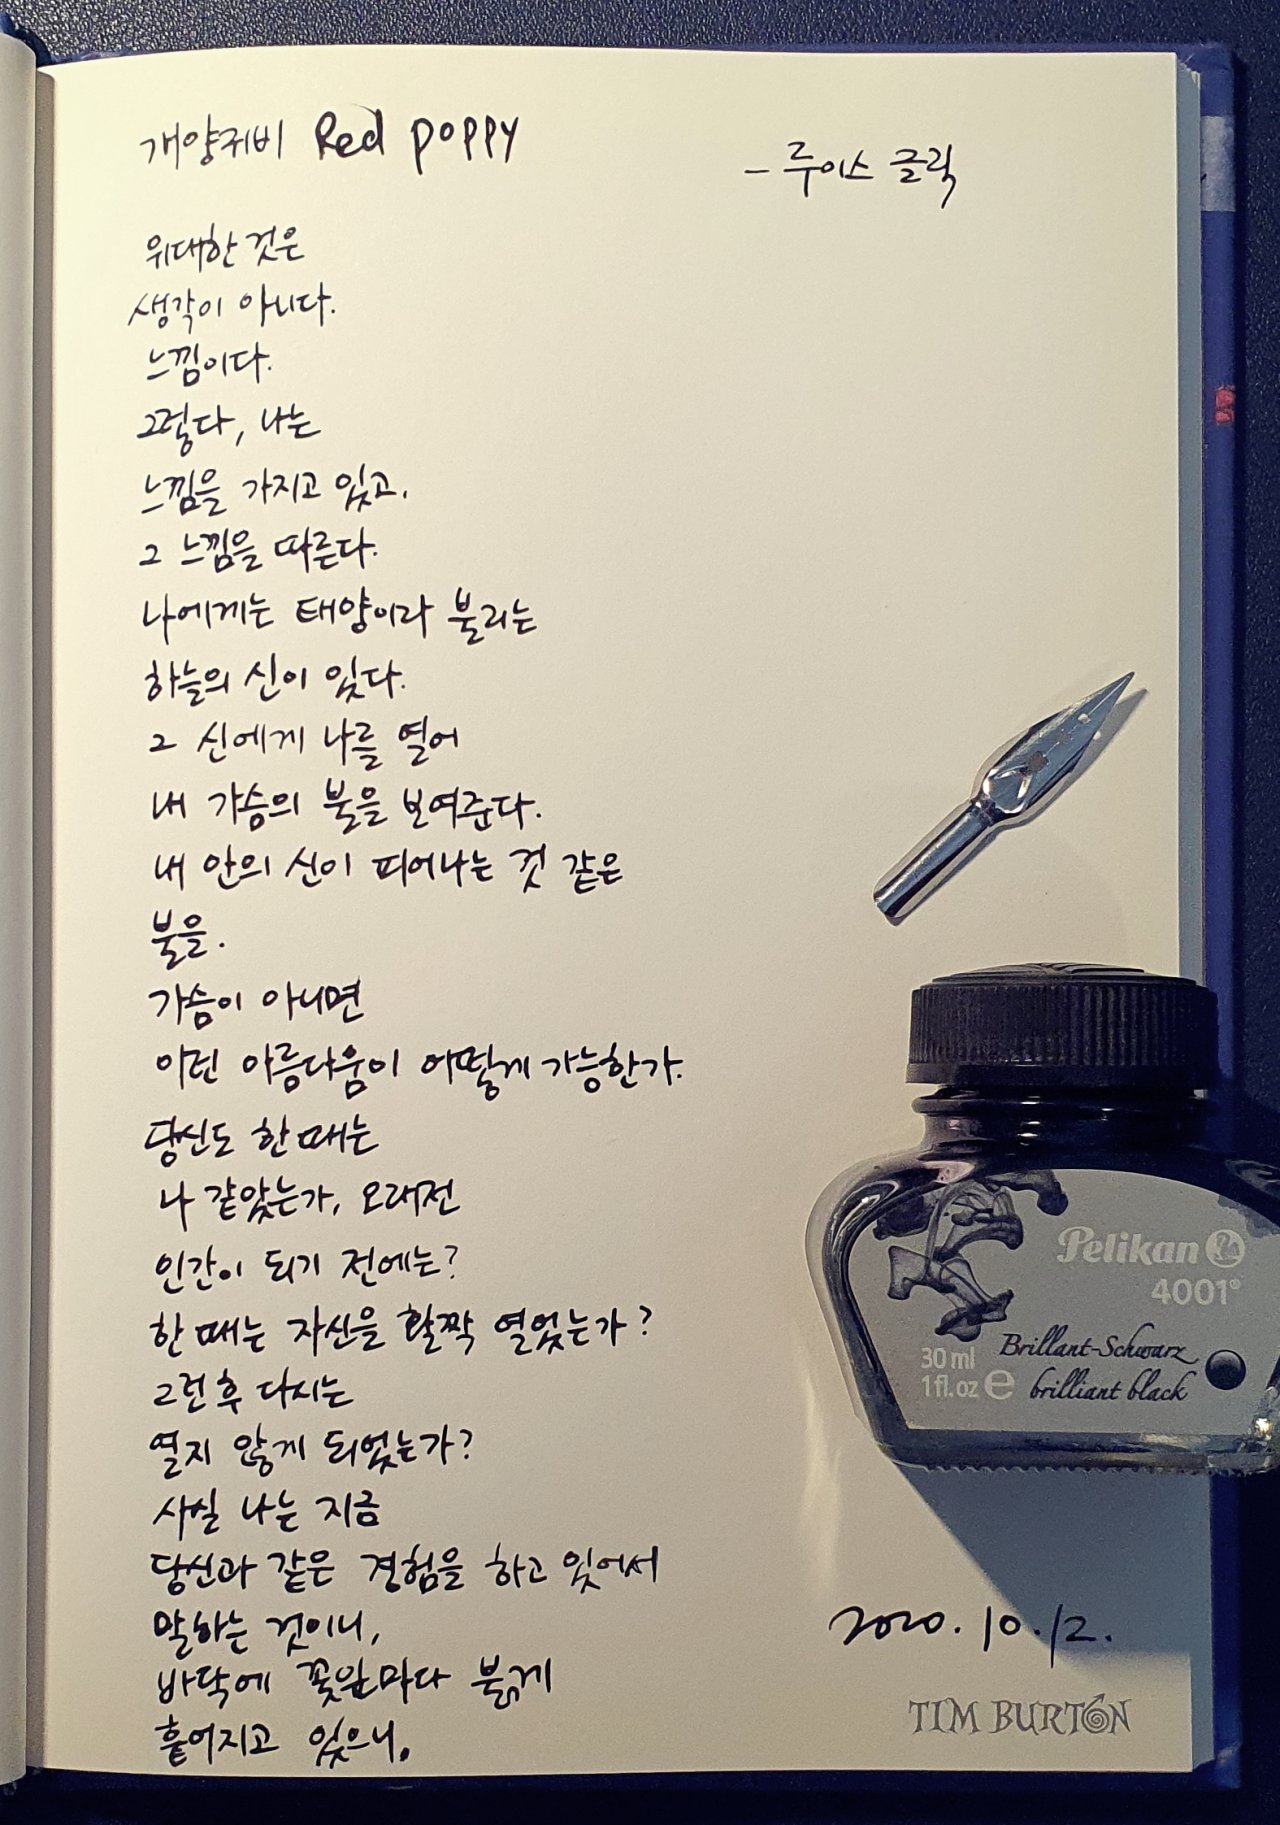 개양귀비 Red poppy
- 루이스 글릭
위대한 것은
생각이 아니다.
느낌이다.
그렇다, 나는
느낌을 가지고 있고,
그 느낌을 따른다.
나에게는 태양이라 불리는
하늘의 신이 있다.
그 신에게 나를 열어
내 가슴의 불을 보여준다.
내 안의 신이 피어나는 것 같은
불을.
가슴이 아니면
이런 아름다움이 어떻게 가능한가.
당신도 한때는
나 같았는가, 오래전
인간이 되기 전에는?
한때는 자신을 활짝 열었는가?
그런 후 다시는
열지 않게 되었는가?
사실 나는 지금
당신과 같은 경험을 하고 있어서
말하는 것이니,
바닥에 꽃잎마다 붉게
흩어지고 있으니.
Pelikan
4001®
Brillant-Schwarz
brilliant black
30 ml
1 fl.oz e
2020. 10. 12.
TIM BURTON